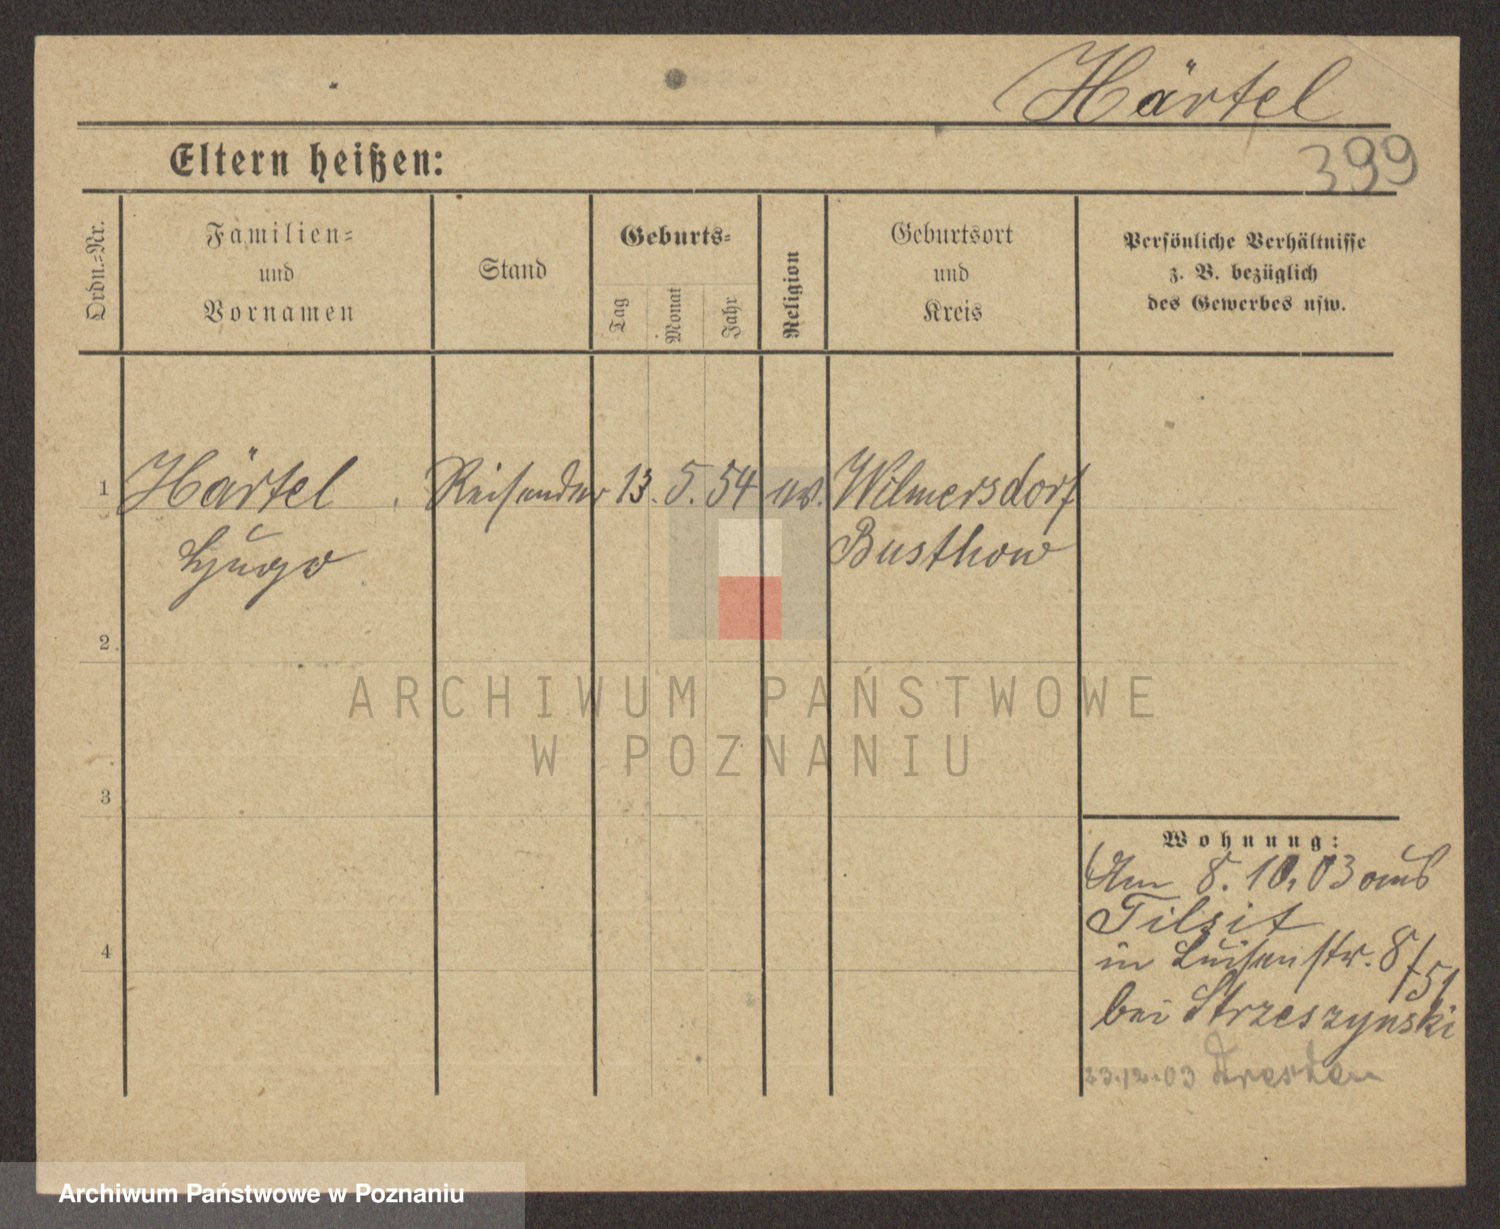 Härtel
399
Eltern heißen:
Ordn.-Nr.
Familien-
und
Vornamen
Stand
Geburts-
Tag
Monat
Jahr
Religion
Geburtsort
und
Kreis
Persönliche Verhältnisse
z. B. bezüglich
des Gewerbes usw.
1 Härtel Reisender 13. 5. 54 ev. Wilmersdorf
Hugo Busthow
2
3
4
Wohnung:
Am 8. 10. 03 aus
Tilsit
in Luisenstr. 8/
51
bei Strzeszynski
23.12.03 Dresden
ARCHIWUM PAŃSTWOWE
W POZNANIU
Archiwum Państwowe w Poznaniu